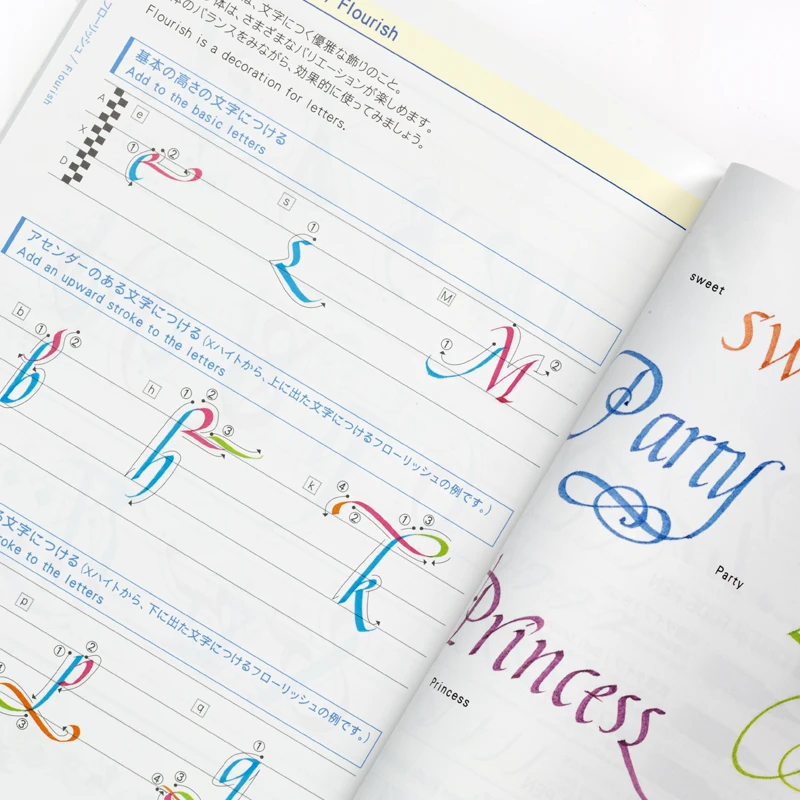 Flourish
は、文字につく優雅な飾りのこと。
体は、さまざまなバリエーションが楽しめます。
体のバランスをみながら、効果的に使ってみましょう。
Flourish is a decoration for letters.
フローリッシュ / Flourish
基本の高さの文字につける
Add to the basic letters
A
X
D
e
① ②
s
①
M
① ②
アセンダーのある文字につける (Xハイトから、上に出た文字につけるフローリッシュの例です。)
Add an upward stroke to the letters
b
① ②
h
① ② ③
k
④ ② ① ③
文字につける (Xハイトから、下に出た文字につけるフローリッシュの例です。)
stroke to the letters
p
① ② ③
q
① ④ ③
sweet
sw
Party
Party
Princess
Princess